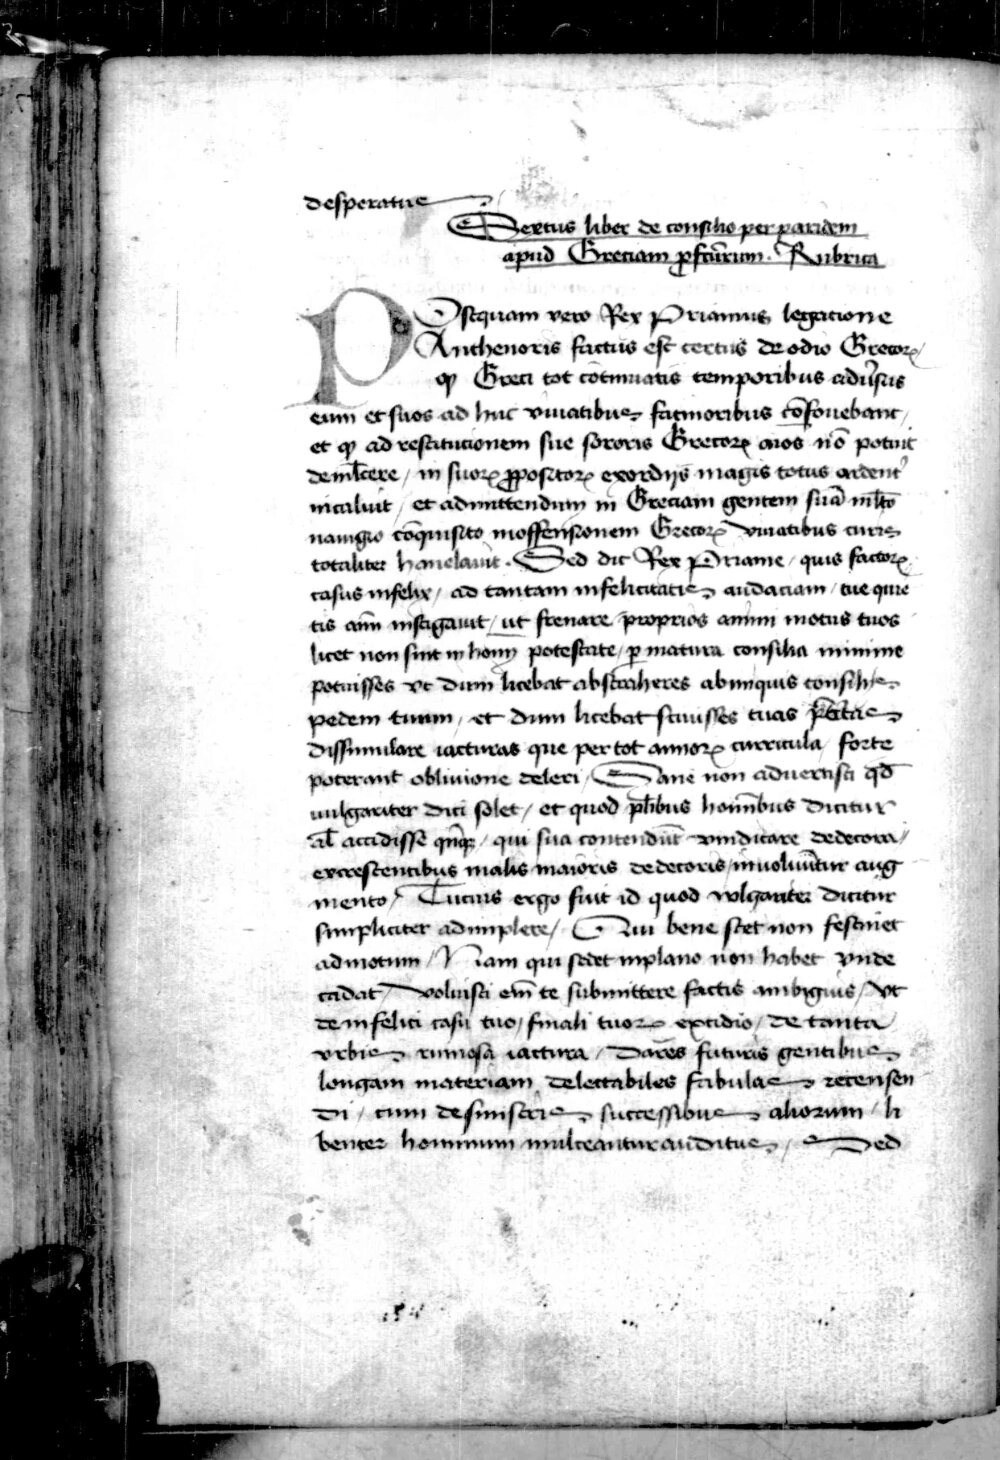 desperatus
Sextus liber de consilio per paridem
apud Greciam ꝓfcūrum. Rubrica
POstquam vero Rex Priamus legacione
Anthenoris factus est certus de odio Grecoꝝ /
qꝫ Greci tot cōtinuatis temporibus adūsus
eum et suos ad huc viuatibus facinoribus cōfouebant /
et qꝫ ad restitucionem sue sororis Grecoꝝ aīos nō potuit
demulcere / in suoꝝ ꝓpositoꝝ exordijs magis totus ardent᷑
incaluit / et admittendum in Greciam gentem suā mlto
nauigio cōquisito inoffensionem Grecoꝝ viuatibus curis
totaliter hanelauit. Sed dic Rex Priame / quis factoꝝ
casus infelix / ad tantam infelicitatis audaciam / tue quie
tis aīm instigauit / ut frenare proprios animi motus tuos
licet non sint in homī potestate / ꝑ matura consilia minime
potuisses vt dum licebat abstraheres abiniquis consilijs
pedem tuum / et dum licebat sciuisses tuas
dissimulare iacturas que per tot annoꝝ curricula / forte
poterant obliuione deleri / Sane non aduertisti qd̄
uulgariter dici solet / et quod pl̄ibus homībus dicitur
al̄ accidisse / qui sua contendūt vindicare dedecora /
excrescentibus malis maioris dedecoris / inuoluūtur aug
mento / Tucius ergo fuit id quod vulgariter dicitur
simpliciter adimplere / Qui bene stet non festinet
admotum / Nam qui sedet inplano non habet vnde
cadat / voluisti em̄ te submittere factis ambiguis / vt
de infelici casu tuo / finali tuoꝝ excidio / de tanta
vrbis rumosa iactura / dares futuris gentibus
longam materiam delectabiles fabulas recensen
di / cum de sinistris successibus aliorum / li
benter hominum mulceantur auditus / Sed